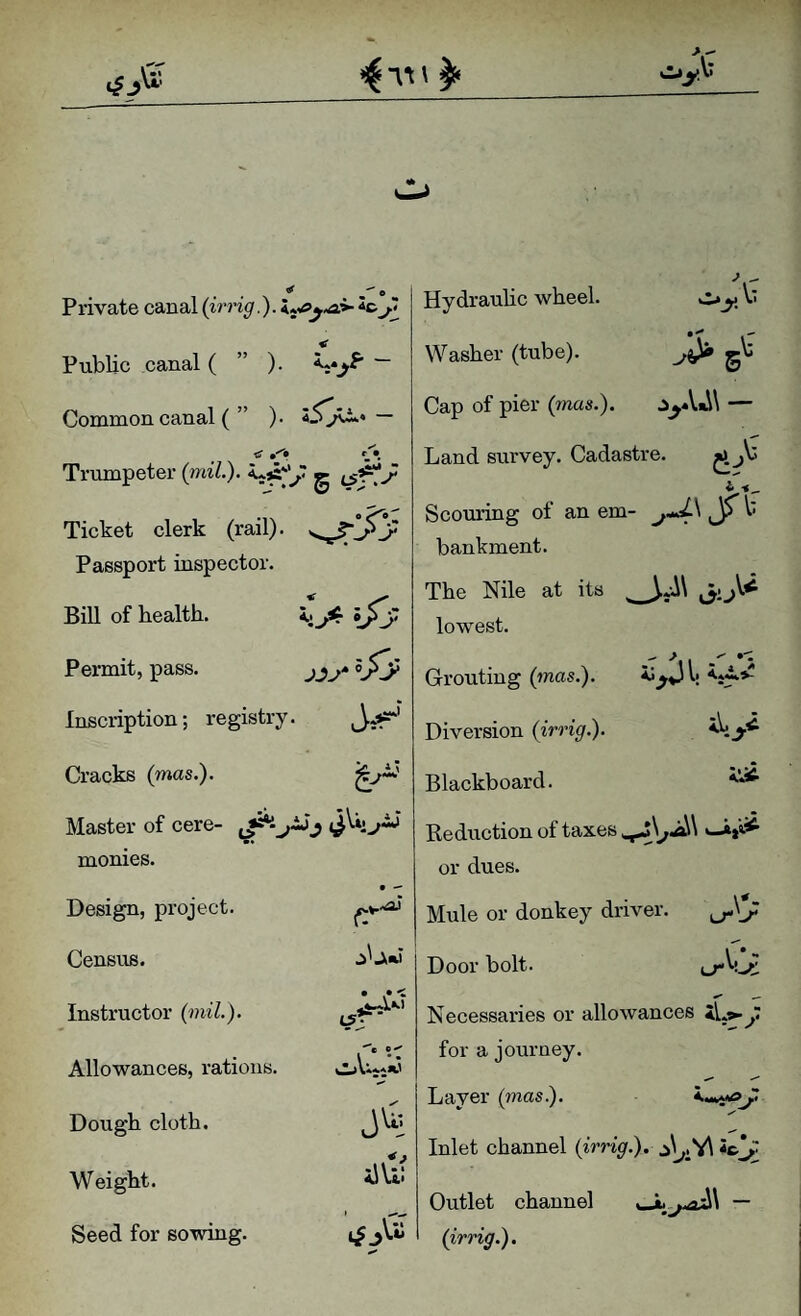 تقاوى ﴿٦٦١﴾ تابوت
ت
Hydraulic wheel. تابوت
Washer (tube). تاج
Cap of pier (mas.). العامود —
Land survey. Cadastre. تاريع
Scouring of an em- تاكل الجسر
bankment.
The Nile at its تحاريق النيل
lowest.
Grouting (mas.). تحشية بالمونة
Diversion (irrig.). تحويلة
Blackboard. تختة
Reduction of taxes تخفيف الضرائب
or dues.
Mule or donkey driver. تراس
Door bolt. ترباس
Necessaries or allowances ترحيلة
for a journey.
Layer (mas.).
Inlet channel (irrig.). ترعة الايراد
Outlet channel التصريف —
(irrig.).
Private canal (irrig.). ترعة خصوصية
Public canal ( ” ). عمومية —
Common canal ( ” ). مشتركة —
Trumpeter (mil.). ج
Ticket clerk (rail). تذكرجى
Passport inspector.
Bill of health. تذكرة
Permit, pass. تذكرة مرور
Inscription; registry. تسجيل
Cracks (mas.). تشريخ
Master of cere- تشريفاتى وتشريفجى
monies.
Design, project. تصميم
Census. تعداد
Instructor (mil.). تعليمجى
Allowances, rations. تعيينات
Dough cloth. تفال
Weight. تقالة
Seed for sowing. تقاوى